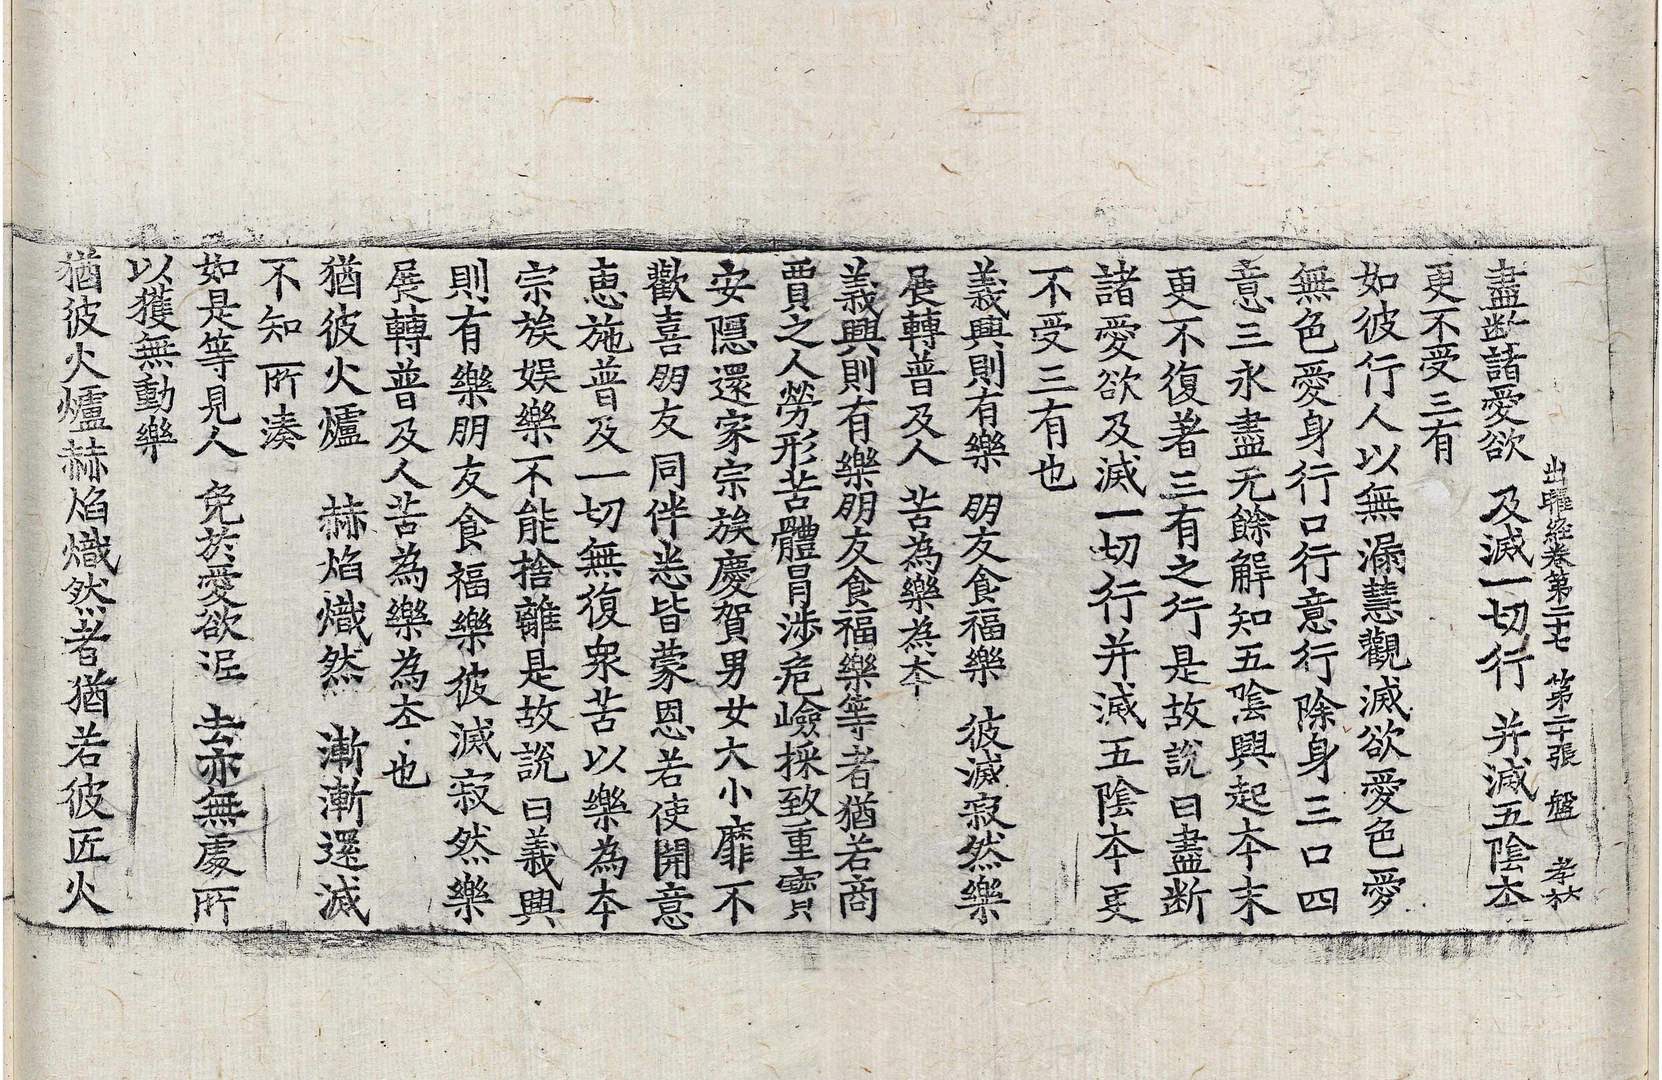 出曜經卷第二十七　第二十張　盤　孝林
盡斷諸愛欲　及滅一切行　并滅五陰本
更不受三有
如彼行人以無漏慧觀滅欲愛色愛
無色愛身行口行意行除身三口四
意三永盡无餘解知五陰興起本末
更不復著三有之行是故說曰盡斷
諸愛欲及滅一切行并滅五陰本更
不受三有也
義興則有樂　朋友食福樂　彼滅寂然樂
展轉普及人　苦為樂為本
義興則有樂朋友食福樂等者猶若商
賈之人勞形苦體冒涉危嶮採致重寶
安隱還家宗族慶賀男女大小靡不
歡喜朋友同伴悉皆蒙恩若使開意
惠施普及一切無復衆苦以樂為本
宗族娛樂不能捨離是故說曰義興
則有樂朋友食福樂彼滅寂然樂
展轉普及人苦為樂為本也
猶彼火爐　赫焰熾然　漸漸還滅
不知所湊
如是等見人　免於愛欲泥　去亦無處所
以獲無動樂
猶彼火爐赫焰熾然者猶若彼匠火